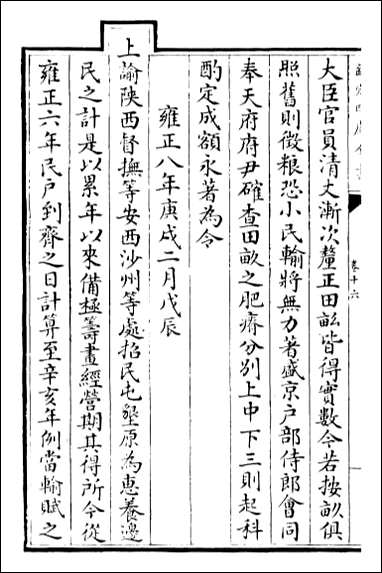 大臣官員清丈漸次釐正田畝皆得實數今若按畝俱
照舊則徵粮恐小民輸將無力著盛京户部侍郎會同
奉天府府尹確查田畝之肥瘠分别上中下三則起科
酌定成額永著為令
雍正八年庚戌二月戊辰
上諭陜西督撫等安西沙州等處招民屯墾原為惠養邊
民之計是以累年以來備極籌畫經營期其得所今從
雍正六年民户到齊之日計算至辛亥年例當輸賦之
卷十六